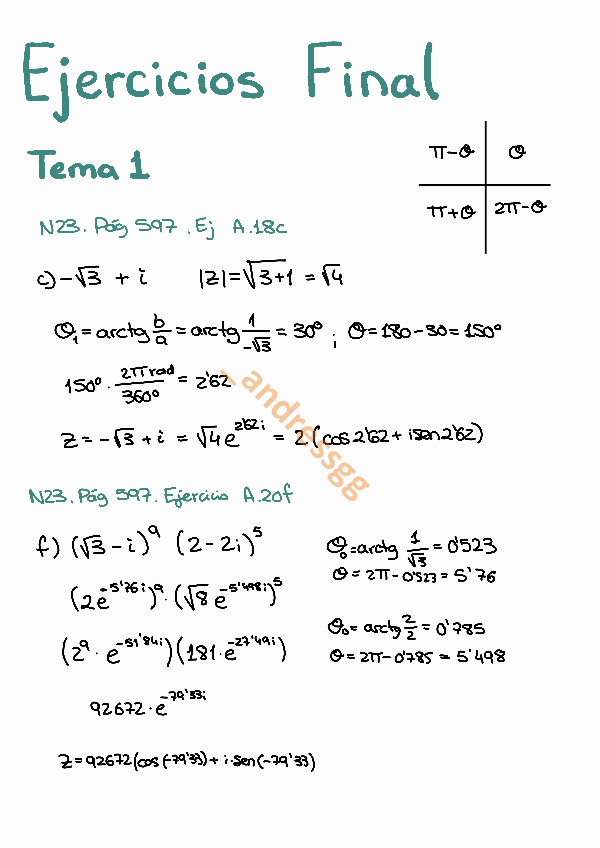 Ejercicios Final
Tema 1
π-θ θ
π+θ 2π-θ
N23. Pág 597. Ej A.18c
c) -√3 + i |Z|=√3+1 = √4
θ₁ = arctg b/a = arctg 1/-√3 = 30º ; θ=180-30=150º
150º · 2π rad/360º = 2'62
z = -√3 + i = √4 e^2'62i = 2(cos 2'62 + i sen 2'62)
_andressgg
N23. Pág 597. Ejercicio A.20f
f) (√3 - i)^9 (2-2i)^5
θ₀=arctg 1/√3 = 0'523
θ = 2π - 0'523 = 5'76
(2e^-5'76i)^9 · (√8 e^-5'498i)^5
θ₀ = arctg 2/2 = 0'785
θ = 2π - 0'785 = 5'498
(2^9 · e^-51'84i)(181·e^-27'49i)
92672·e^-79'33i
z=92672(cos(-79'33)+i·sen(-79'33)